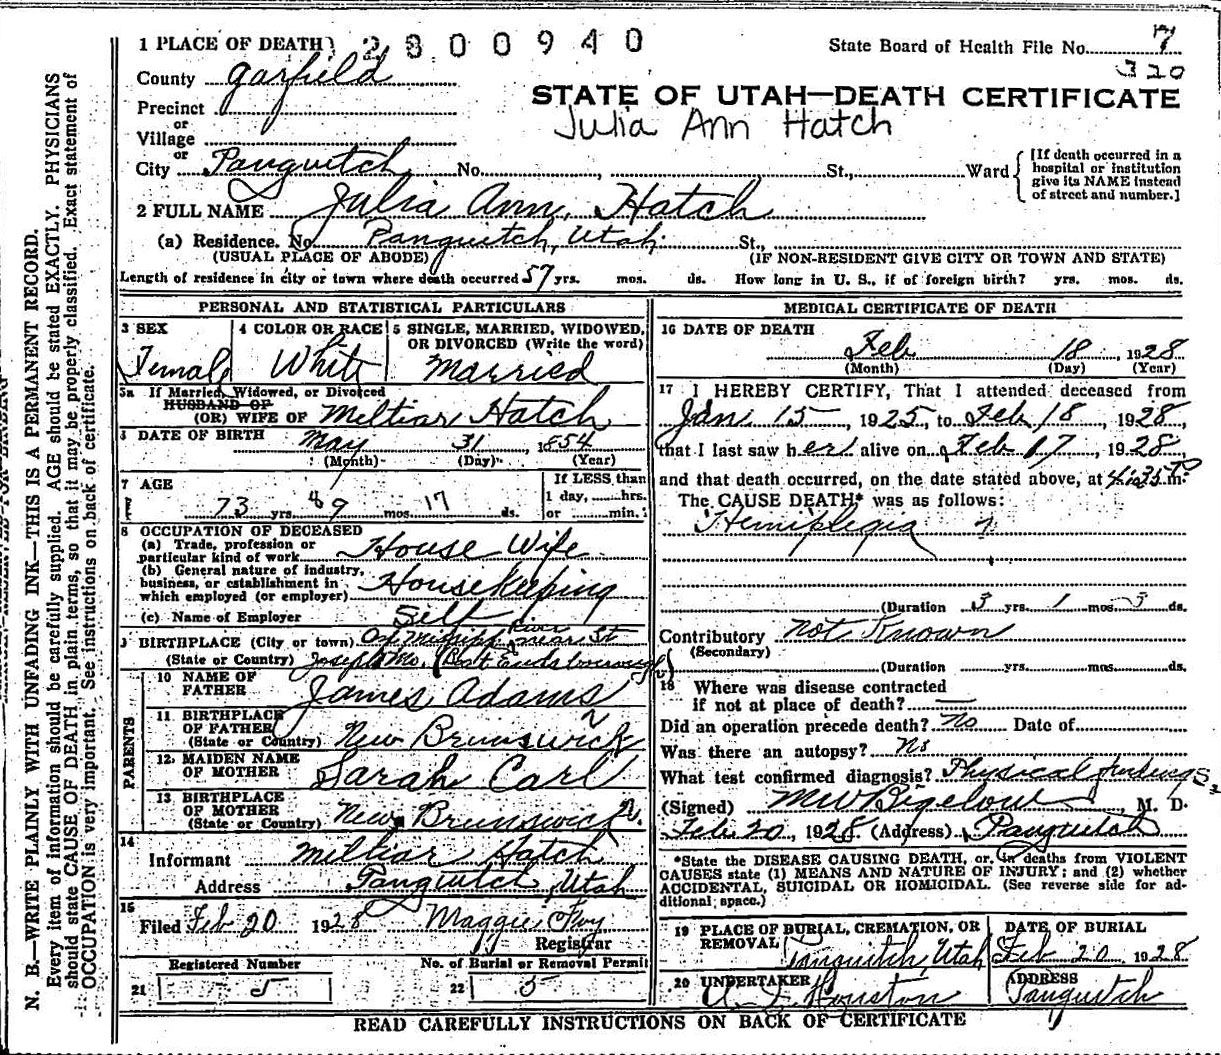 1 PLACE OF DEATH 2800940 State Board of Health File No. 7
320
County Garfield
STATE OF UTAH—DEATH CERTIFICATE
Precinct
Julia Ann Hatch
or
Village
or
City Panguitch No. St., Ward
[If death occurred in a
hospital or institution
give its NAME instead
of street and number.]
2 FULL NAME Julia Ann Hatch
(a) Residence. No. Panguitch, Utah St.,
(USUAL PLACE OF ABODE) (IF NON-RESIDENT GIVE CITY OR TOWN AND STATE)
Length of residence in city or town where death occurred 57 yrs. mos. ds. How long in U. S., if of foreign birth? yrs. mos. ds.
PERSONAL AND STATISTICAL PARTICULARS
3 SEX
Female
4 COLOR OR RACE
White
5 SINGLE, MARRIED, WIDOWED,
OR DIVORCED (Write the word)
Married
5a If Married, Widowed, or Divorced
HUSBAND OF
(OR) WIFE OF Meltiar Hatch
6 DATE OF BIRTH May 31 1854
(Month) (Day) (Year)
7 AGE
73 yrs. 8 mos. 17 ds.
If LESS than
1 day, hrs.
or min.
8 OCCUPATION OF DECEASED
(a) Trade, profession or
particular kind of work House Wife
(b) General nature of industry,
business, or establishment in
which employed (or employer) Housekeeping
(c) Name of Employer Self
9 BIRTHPLACE (City or town) River near St
(State or Country) Joseph Mo.
PARENTS
10 NAME OF
FATHER James Adams
11 BIRTHPLACE
OF FATHER
(State or Country) New Brunswick
12 MAIDEN NAME
OF MOTHER Sarah Carl
13 BIRTHPLACE
OF MOTHER
(State or Country) New Brunswick
14
Informant Meltiar Hatch
Address Panguitch, Utah
15
Filed Feb 20 1928 Maggie Foy
Registrar
Registered Number No. of Burial or Removal Permit
21 5 22 3
MEDICAL CERTIFICATE OF DEATH
16 DATE OF DEATH
Feb 18, 1928
(Month) (Day) (Year)
17 I HEREBY CERTIFY, That I attended deceased from
Jan 15, 1925, to Feb 18, 1928,
that I last saw her alive on Feb 17, 1928,
and that death occurred, on the date stated above, at 4:35 P m.
The CAUSE DEATH* was as follows:
Hemiplegia
(Duration 3 yrs. 1 mos. 3 ds.
Contributory Not Known
(Secondary)
(Duration yrs. mos. ds.
18 Where was disease contracted
if not at place of death?
Did an operation precede death? No Date of
Was there an autopsy? No
What test confirmed diagnosis? Physical findings
(Signed) M W Bigelow, M. D.
Feb 20, 1928 (Address) Panguitch
*State the DISEASE CAUSING DEATH, or, in deaths from VIOLENT
CAUSES state (1) MEANS AND NATURE OF INJURY; and (2) whether
ACCIDENTAL, SUICIDAL OR HOMICIDAL. (See reverse side for ad-
ditional space.)
19 PLACE OF BURIAL, CREMATION, OR
REMOVAL Panguitch, Utah
DATE OF BURIAL
Feb 20 1928
20 UNDERTAKER
Houston
ADDRESS
Panguitch
READ CAREFULLY INSTRUCTIONS ON BACK OF CERTIFICATE
N. B.—WRITE PLAINLY WITH UNFADING INK—THIS IS A PERMANENT RECORD.
Every item of information should be carefully supplied. AGE should be stated EXACTLY. PHYSICIANS
should state CAUSE OF DEATH in plain terms, so that it may be properly classified. Exact statement of
OCCUPATION is very important. See instructions on back of certificate.